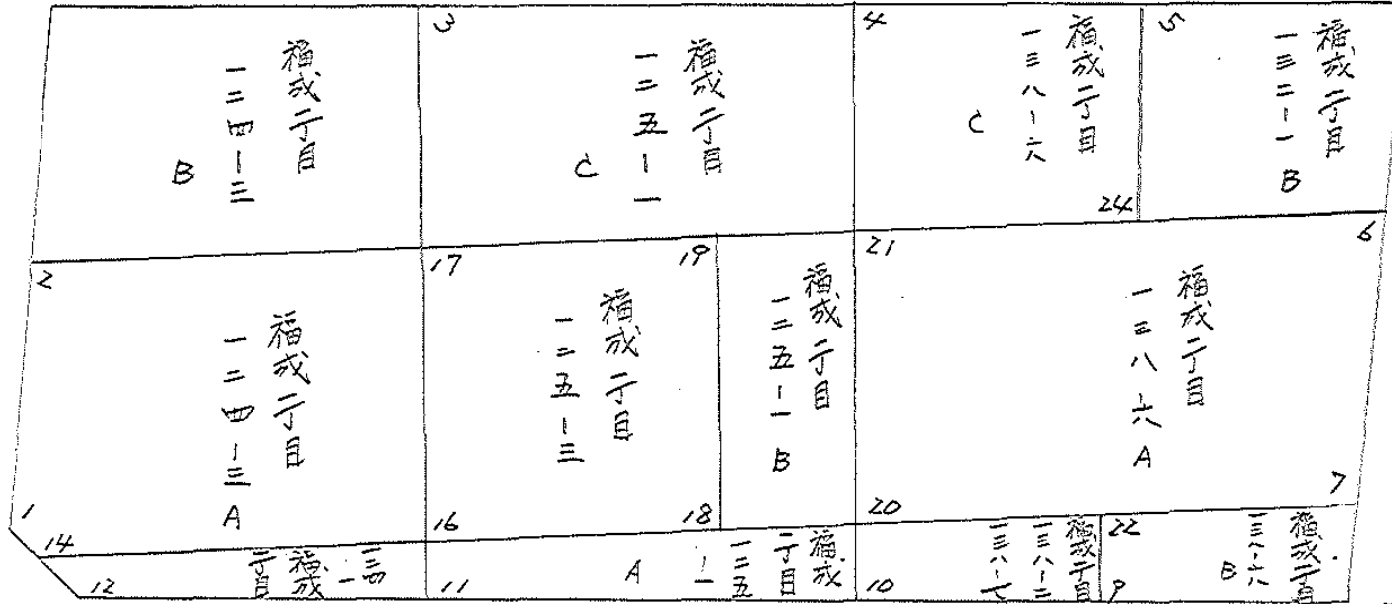 福成二丁目
一二四-三
B
3
福成二丁目
一二五-一
C
4
福成二丁目
一三八-六
C
24
5
福成二丁目
一三二-一
B
2
福成二丁目
一二四-三
A
1
14
17
福成二丁目
一二五-三
16
19
18
福成二丁目
一二五-一
B
21
6
福成二丁目
一三八-六
A
20
7
12
福成
二丁目
11
福成
二丁目
一二五
-一
A
10
福成二丁目
一三八-二
一三八-七
22
9
福成二丁目
一三八-六
B